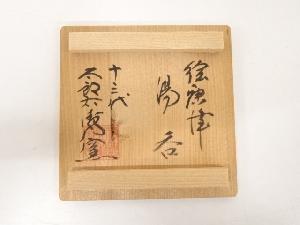 絵唐津
湯呑
十三代
太郎右衛門窯